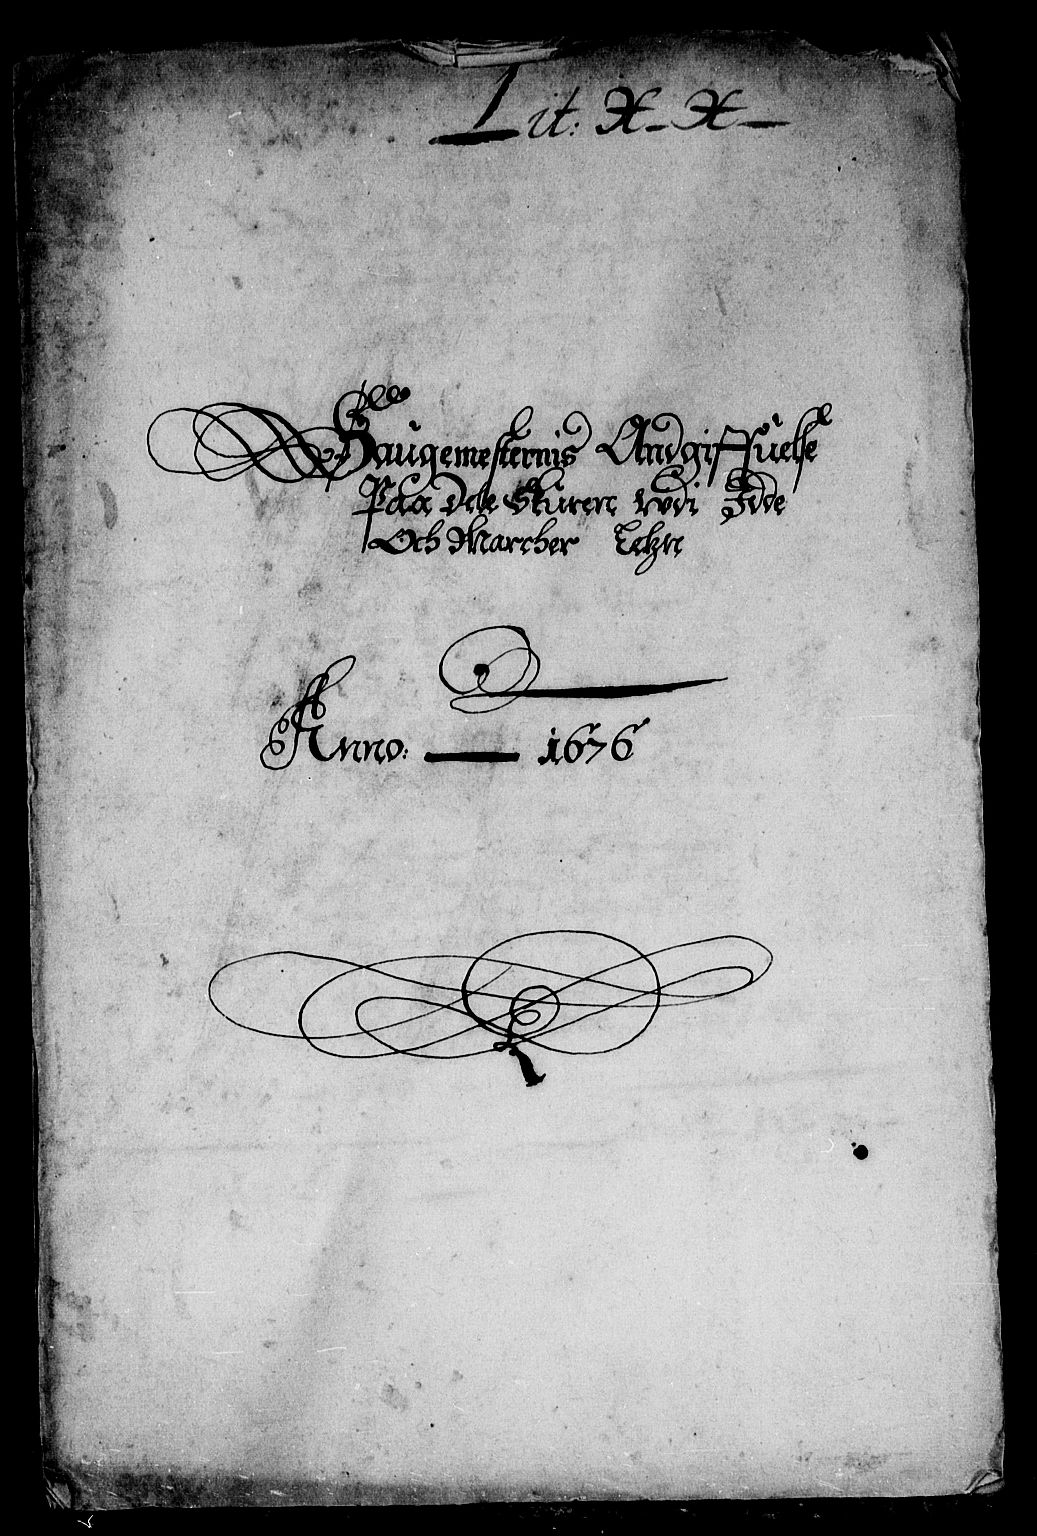 Lit: X-X-
Saugemesternis Andgiffuelse
Paa Dele Skuren udi Idde
Och Marcher Lehn
Anno: 1676